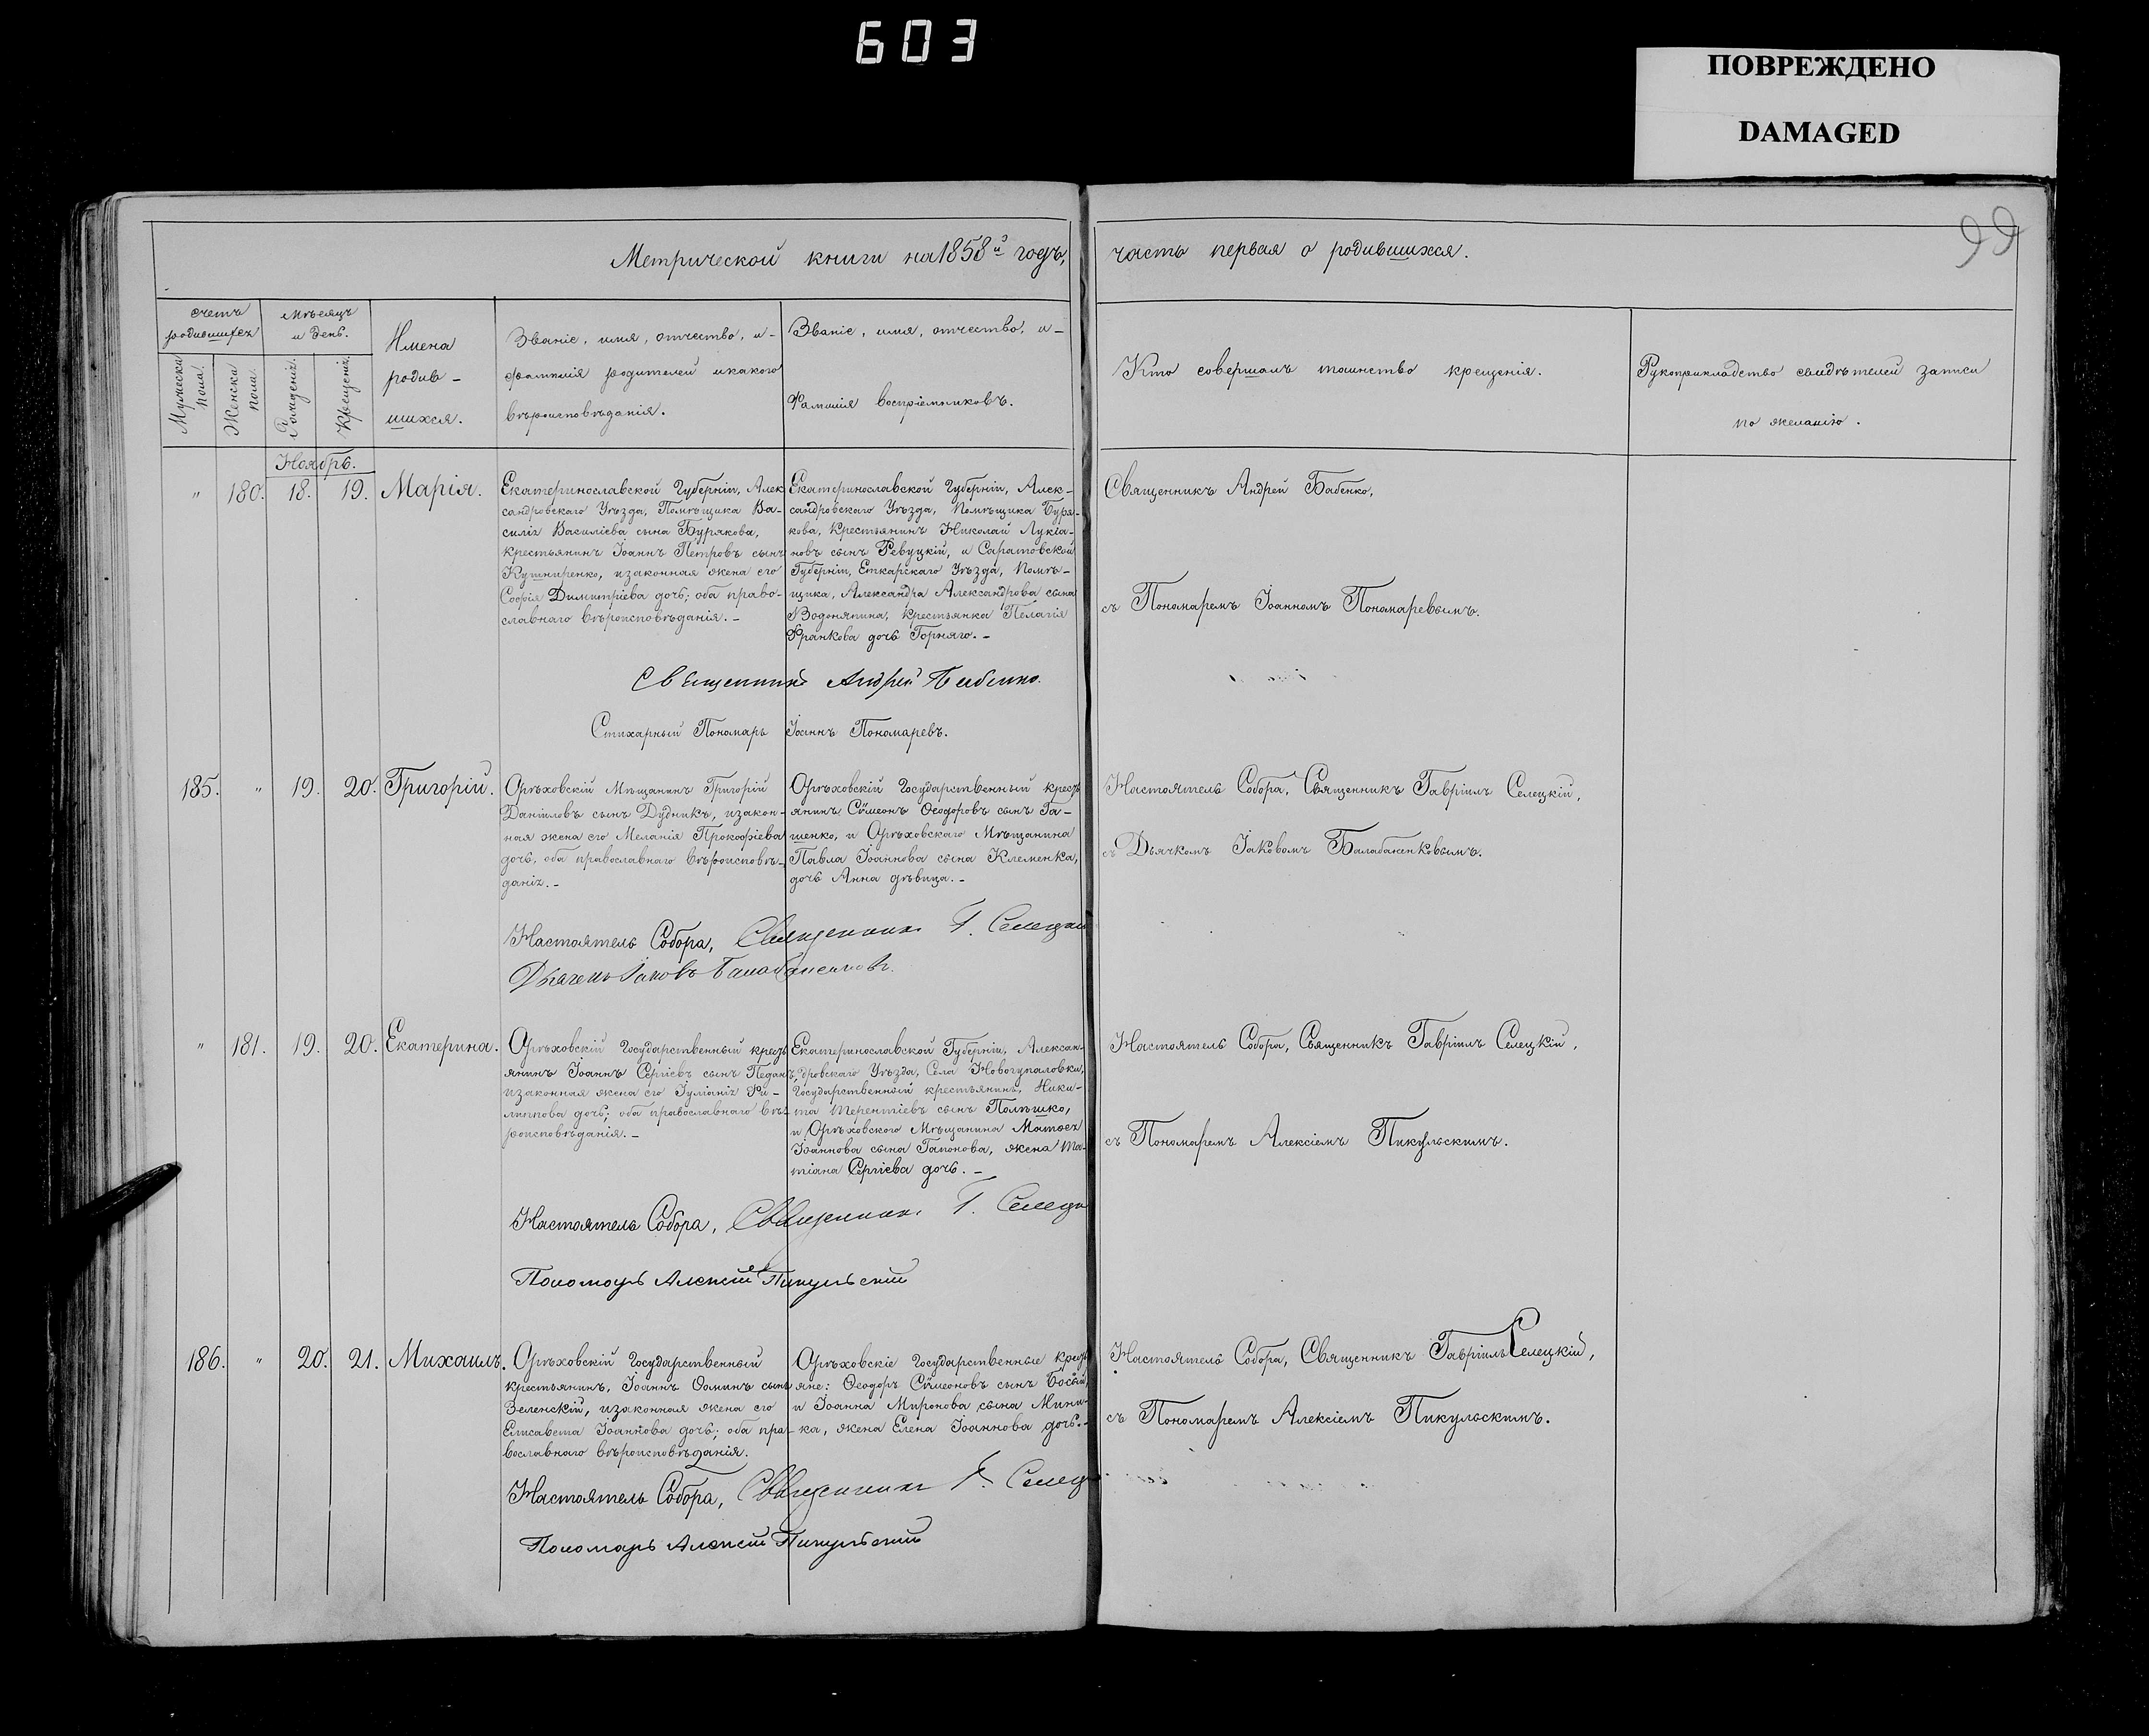 603
ПОВРЕЖДЕНО
DAMAGED
99
Метрической книги на 1858й годъ,
часть первая о родившихся.
счетъ родившихся
Мужеска пола.
Женска пола.
мѣсяцъ и день.
Рожденія.
Крещенія.
Имена
родив-
шихся.
Званіе, имя, отчество, и-
фамилія родителей и какого
вѣроисповѣданія.
Званіе, имя, отчество, и-
Фамилія воспріемниковъ.
Кто совершалъ таинство крещенія.
Рукоприкладство свидѣтелей записи
по желанію.
Ноябрь.
" 180. 18. 19. Марія.
Екатеринославской Губерніи, Алек
сандровскаго Уѣзда, Помѣщика Ва-
силія Василіева сына Бурякова,
крестьянинъ Іоаннъ Петровъ сынъ
Кушниренко, и законная жена его
Софія Димитріева дочь; оба право-
славнаго вѣроисповѣданія.-
Екатеринославской Губерніи, Алек-
сандровскаго Уѣзда, Помѣщика Буря-
кова, крестьянинъ Николай Лукіа-
новъ сынъ Ревуцкій, и Саратовской
Губерніи, Еткарскаго Уѣзда, Помѣ-
щика, Александра Александрова сына
Водоняпина, крестьянка Пелагія
Франкова дочь Горняго.-
Священникъ Андрей Бабенко,
съ Пономаремъ Іоанномъ Пономаревымъ.
Священникъ Андрей Бабенко.
Стихарный Пономарь Іоаннъ Пономаревъ.
185. " 19. 20. Григорій.
Орѣховскій Мѣщанинъ Григорій
Даніиловъ сынъ Дудникъ, и закон-
ная жена его Меланія Прокофіева
дочь, оба православнаго вѣроисповѣ-
данія.-
Орѣховскій Государственный кресть
янинъ Сѵмеонъ Ѳеодоровъ сынъ Га-
шенко, и Орѣховскаго Мѣщанина
Павла Іоаннова сына Клеменка,
дочь Анна дѣвица.-
Настоятель Собора, Священникъ Гавріилъ Селецкій,
съ Дьячкомъ Іаковомъ Балабаненковымъ.
Настоятель Собора, Священникъ Г. Селецкій
Дьячекъ Іаковъ Балабаненковъ.
" 181. 19. 20. Екатерина.
Орѣховскій Государственный кресть
янинъ Іоаннъ Сергіевъ сынъ Педанъ,
и законная жена его Іуліанія Фи-
липпова дочь; оба православнаго вѣ-
роисповѣданія.-
Екатеринославской Губерніи, Алексан-
дровскаго Уѣзда, Села Новогупаловки,
Государственный крестьянинъ, Ники-
та Терентіевъ сынъ Полѣшко,
и Орѣховского Мѣщанина Матѳея
Іоаннова сына Гапонова, жена Та-
тіана Сергіева дочь.-
Настоятель Собора, Священникъ Гавріилъ Селецкій,
съ Пономаремъ Алексіемъ Пикульскимъ.
Настоятель Собора, Священникъ Г. Селецк
Пономарь Алексій Пикульскій
186. " 20. 21. Михаилъ.
Орѣховскій Государственный
крестьянинъ, Іоаннъ Ѳоминъ сынъ
Зеленскій, и законная жена его
Елисавета Іоаннова дочь; оба пра-
вославнаго вѣроисповѣданія.
Орѣховскіе Государственные кресть
яне: Ѳеодоръ Сѵмеоновъ сынъ Босый,
и Іоанна Миронова сына Мини-
ка, жена Елена Іоаннова дочь.-
Настоятель Собора, Священникъ Гавріилъ Селецкій,
съ Пономаремъ Алексіемъ Пикульскимъ.
Настоятель Собора, Священникъ Г. Селец
Пономарь Алексій Пикульскій